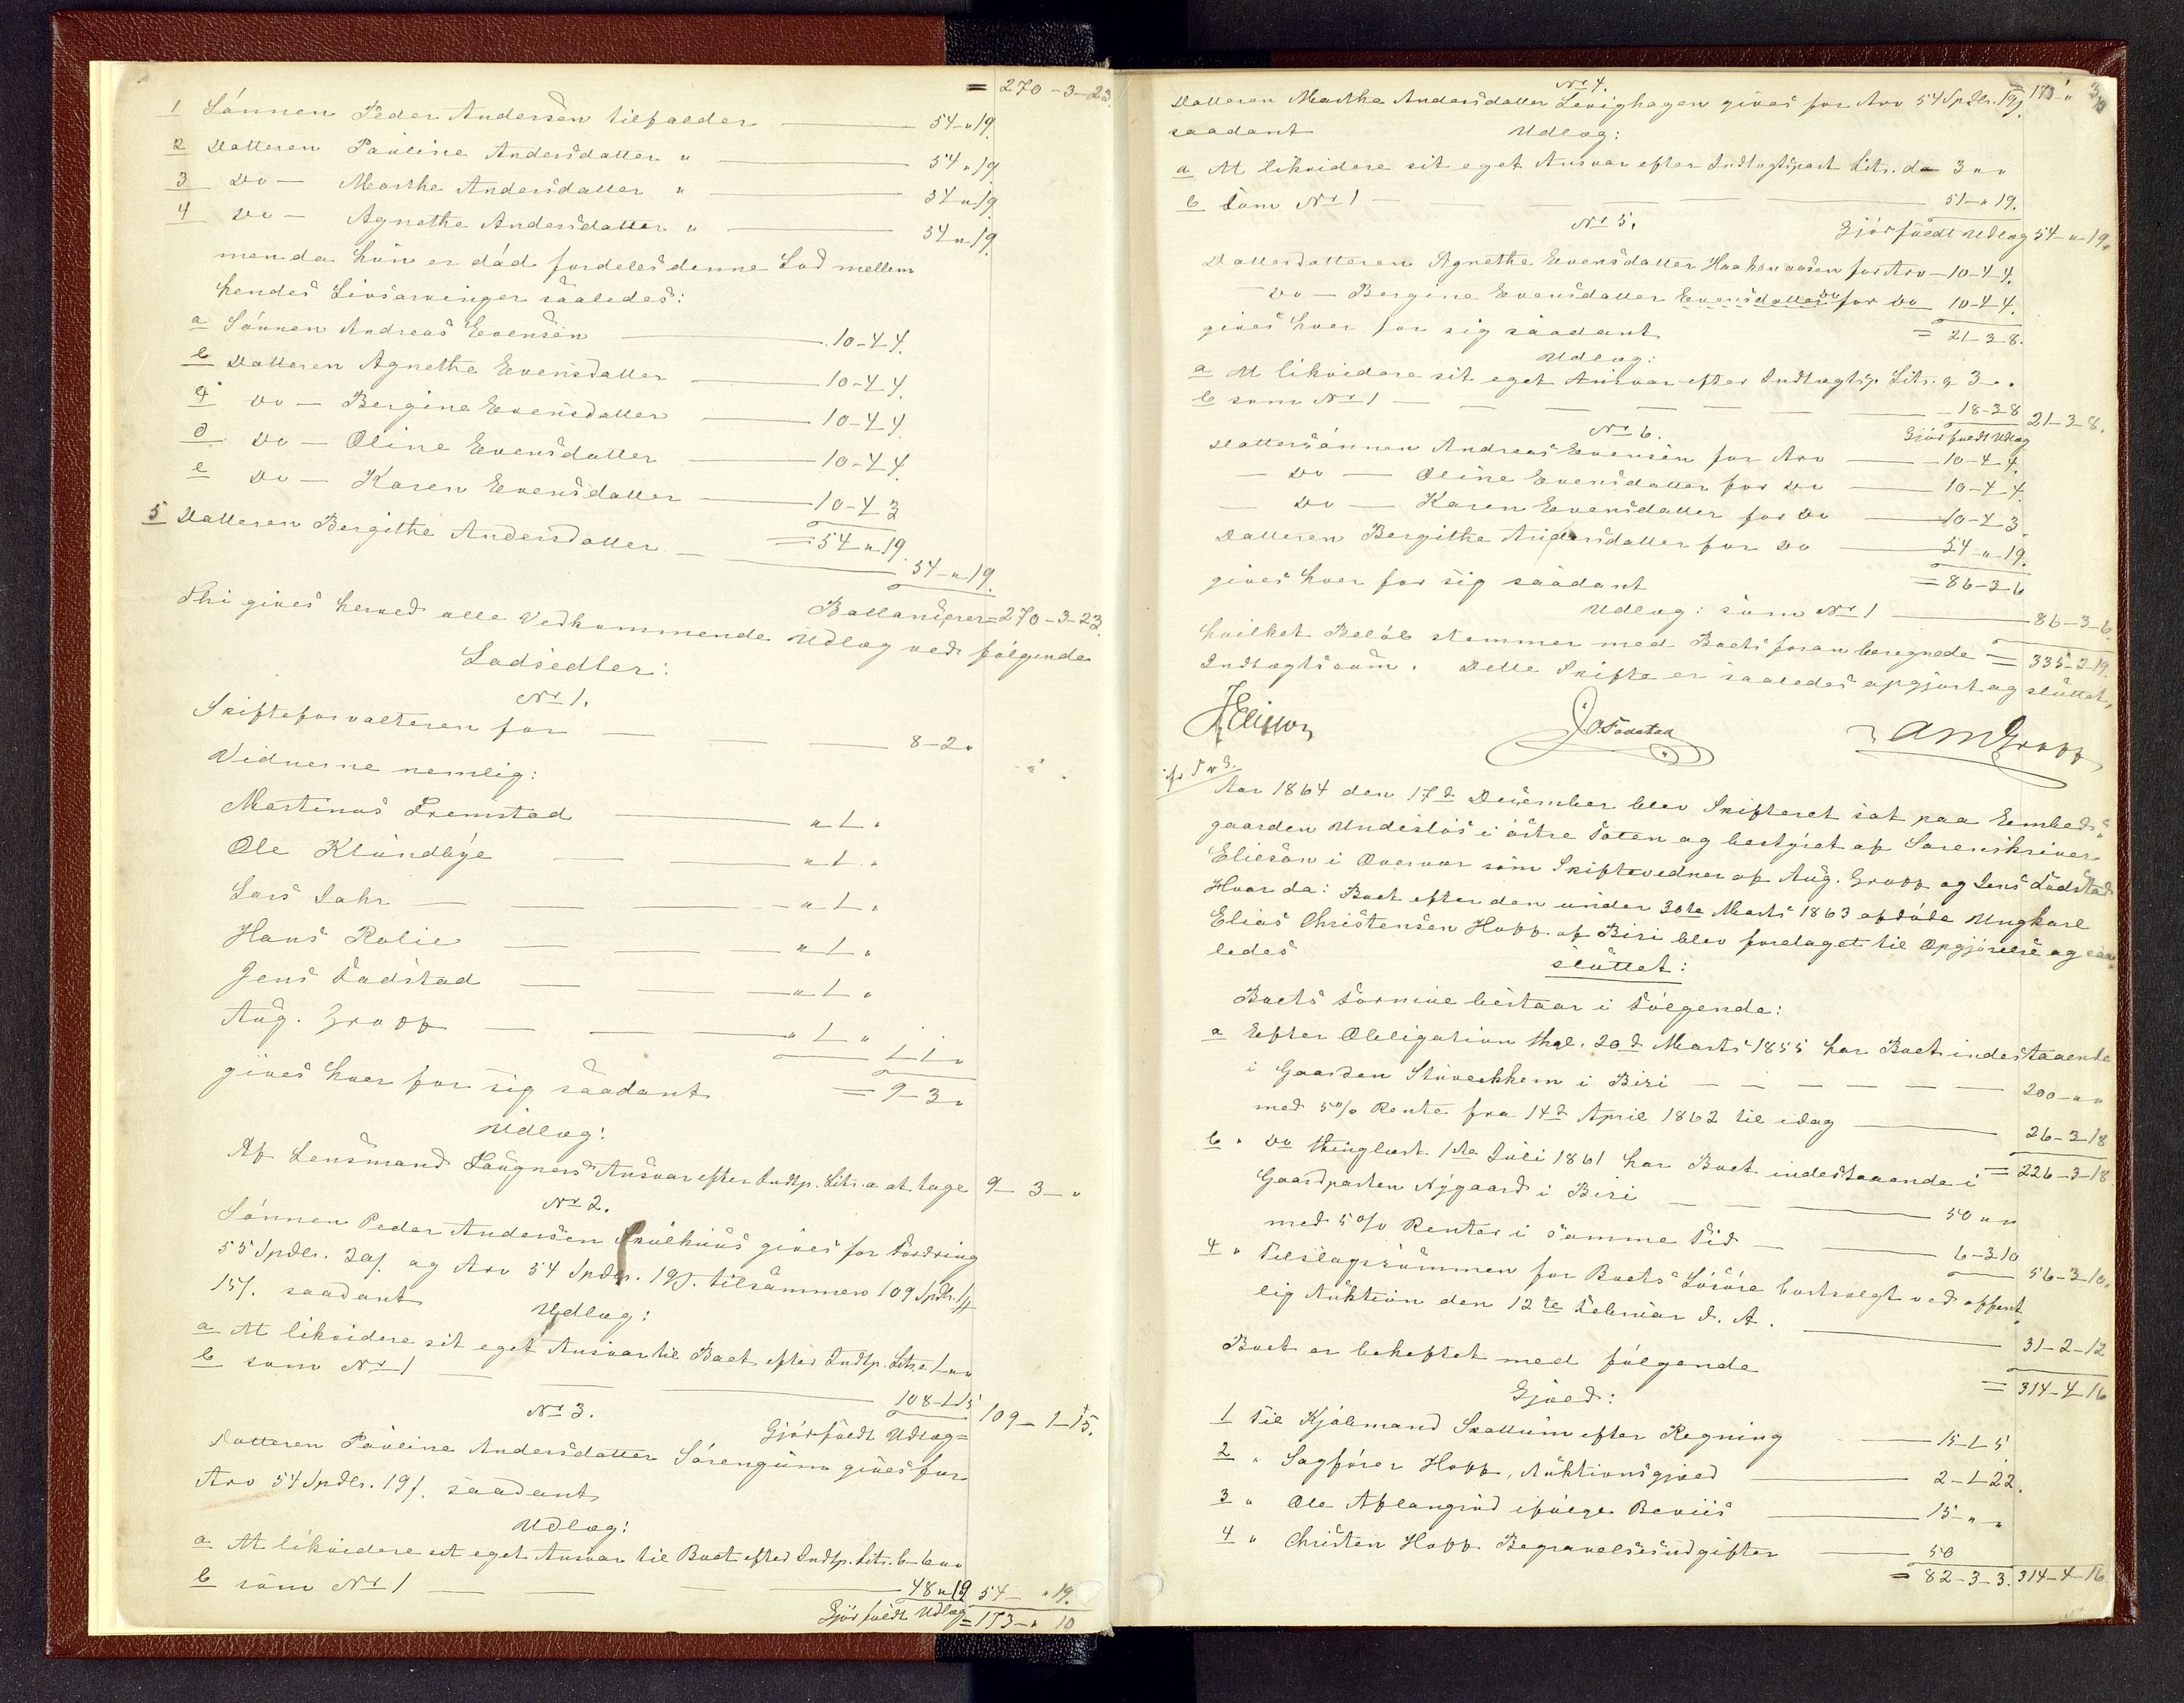 = 270-3-23.
1 Sönnen Peder Andersen tilfalder — 54-"19.
2 Datteren Pauline Andersdatter " — 54"19
3 Do — Marthe Andersdatter " — 54"19
4 Do — Agnethe Andersdatter " — 54"19.
men da hun er död fordeles denne Lod mellem
hendes Livsarvinger saaledes:
a Sönnen Andreas Evensen — 10-4-4.
b Datteren Agnethe Evensdatter — 10-4-4.
c Do — Bergine Evensdatter — 10-4-4.
d Do — Oline Evensdatter — 10-4-4.
e Do — Karen Evensdatter — 10-4-3
= 54"19.
5 Datteren Bergithe Andersdatter — 54-"19.
Ballancerer = 270-3-23.
Thi gives herved alle Vedkommende Udlæg ved følgende
Lodsedler:
No 1.
Skifteforvalteren for — 8-2"
Vidnerne nemlig:
Martinus Tremstad — "1"
Ole Klundbÿe — "1"
Lars Dahr — "1"
Hans Rolie — "1"
Jens Fodstad — "1"
Aug. Gropp — "1"
1-1"
gives hver for sig saadant = 9-3"
Udlæg:
Af Lensmand Haugners Ansvar efter Indtp. Litr. a at tage 9-3-"
No 2.
Sönnen Peder Andersen Skulhuus gives for Fordring
55 Spdlr. 20 s. og Arv 54 Spdlr. 19 s. tilsammen 109 Spdlr. 1 #
15 s. saadant
Udlæg:
a At likvidere sit eget Ansvar til Boet efter Indtp. Litr. c 1""
b som No 1 — 108-1-15
Gjörfuldt Udlæg = 109-1-15.
No 3.
Datteren Pauline Andersdatter Sörengum gives for
Arv 54 Spdlr. 19 s. saadant
Udlæg:
a At likvidere sit eget Ansvar til Boet efter Indtp. Litr. b 6""
b som No 1 — 48"19 54-"19.
Gjörfuldt Udlæg = 173-" 10
No 4. = 173 "
Datteren Marthe Andersdatter Levighagen gives for Arv 54 Spdlr. 19 s.
saadant Udlæg:
a At likvidere sit eget Ansvar efter Indtægtspost Litr. d 3""
b Som No 1 — 51-"19.
No 5. Gjörfuldt Udlæg 54-"19.
Datterdatteren Agnethe Evensdatter Haakonaasen for Arv — 10-4-4.
Do — Bergine Evensdatter Evensdatter Do for Do 10-4-4.
gives hver for sig saadant = 21-3-8.
Udlæg:
a At likvidere sit eget Ansvar efter Indtægtsp. Litr. 3""
b som No 1 — 18-3-8 21-3-8.
No 6. Gjörfuldt Udlæg
Dattersönnen Andreas Evensen for Arv — 10-4-4.
Do — Oline Evensdatter for Do — 10-4-4
Do — Karen Evensdatter for Do — 10-4-3
Datteren Bergithe Andersdatter for Do — 54-"-19.
gives hver for sig saadant = 86-3-6
Udlæg: som No 1 — 86-3-6.
hvilket Belöb stemmer med Boets foran beregnede = 335-2-19.
Indtægtssum. Dette Skifte er saaledes opgjort og sluttet,
Elieson J. Fodstad AMGropp
Aar 1864 den 17de December blev Skifteret sat paa Embeds-
gaarden Undeslös i östre Toten og bestÿret af Sorenskriver
Elieson i Overvær som Skiftevidner af Aug. Gropp og Jens Fodstad
Hvor da: Boet efter den under 30te Marts 1863 afdöde Ungkarl
Elias Christensen Hopp af Biri blev foretaget til Opgjörelse og saa-
ledes
sluttet:
Boets Formue bestaar i Fölgende:
a Efter Obligation thgl. 20de Marts 1855 har Boet indestaaende
i Gaarden Stuveskhem i Biri — 200-""
med 5% Rente fra 14de April 1862 til idag — 26-3-18
= 226-3-18
b " Do thinglæst 1ste Juli 1861 har Boet indestaaende i
Gaardparten Nÿgaard i Biri — 50""
med 5% Renter i samme Tid — 6-3-10
56-3-10.
4 " Tilslagssummen for Boets Lösöre bortsolgt ved offent-
lig Auktion den 12te Februar d. A. — 31-2-12
Boet er beheftet med følgende = 314-4-16
Gjæld:
1 Til Kjöbmand Skattum efter Regning — 15-1-5
2 " Sagförer Hopp, Auktionsgjæld — 2-1-22.
3 " Ole Aflangrud ifölge Beviis — 15-"-"
4 " Christen Hopp Begravelsesudgifter — 50
= 82-3-3. 314-4-16